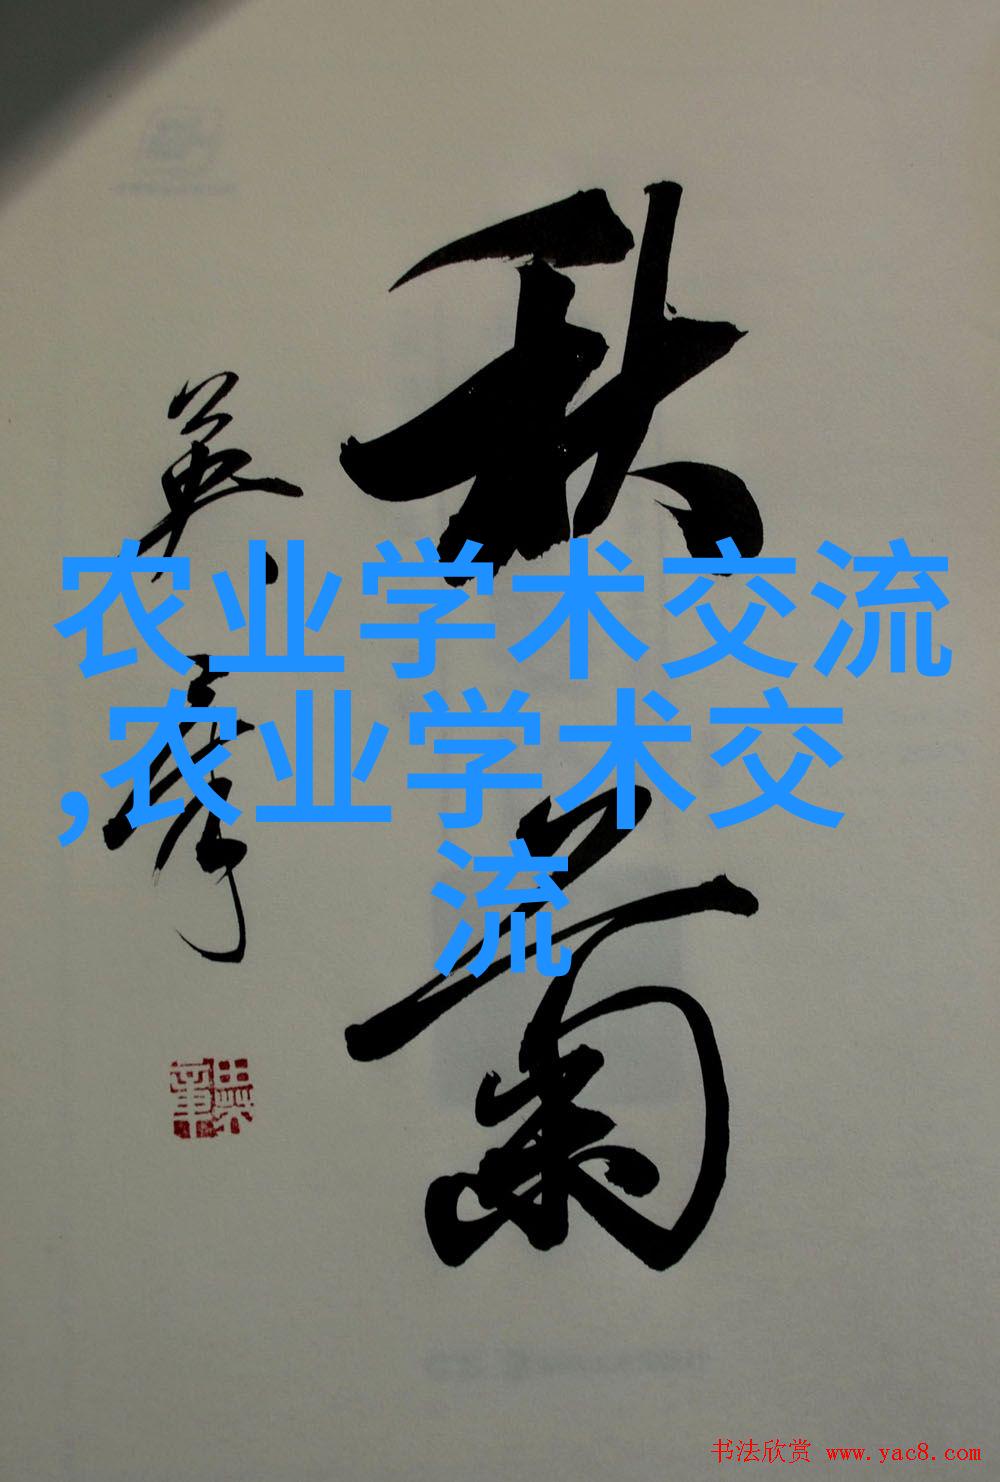 秋菊
英章
农业学术交流
,农业学术交
流
书法欣赏 www.yac8.com